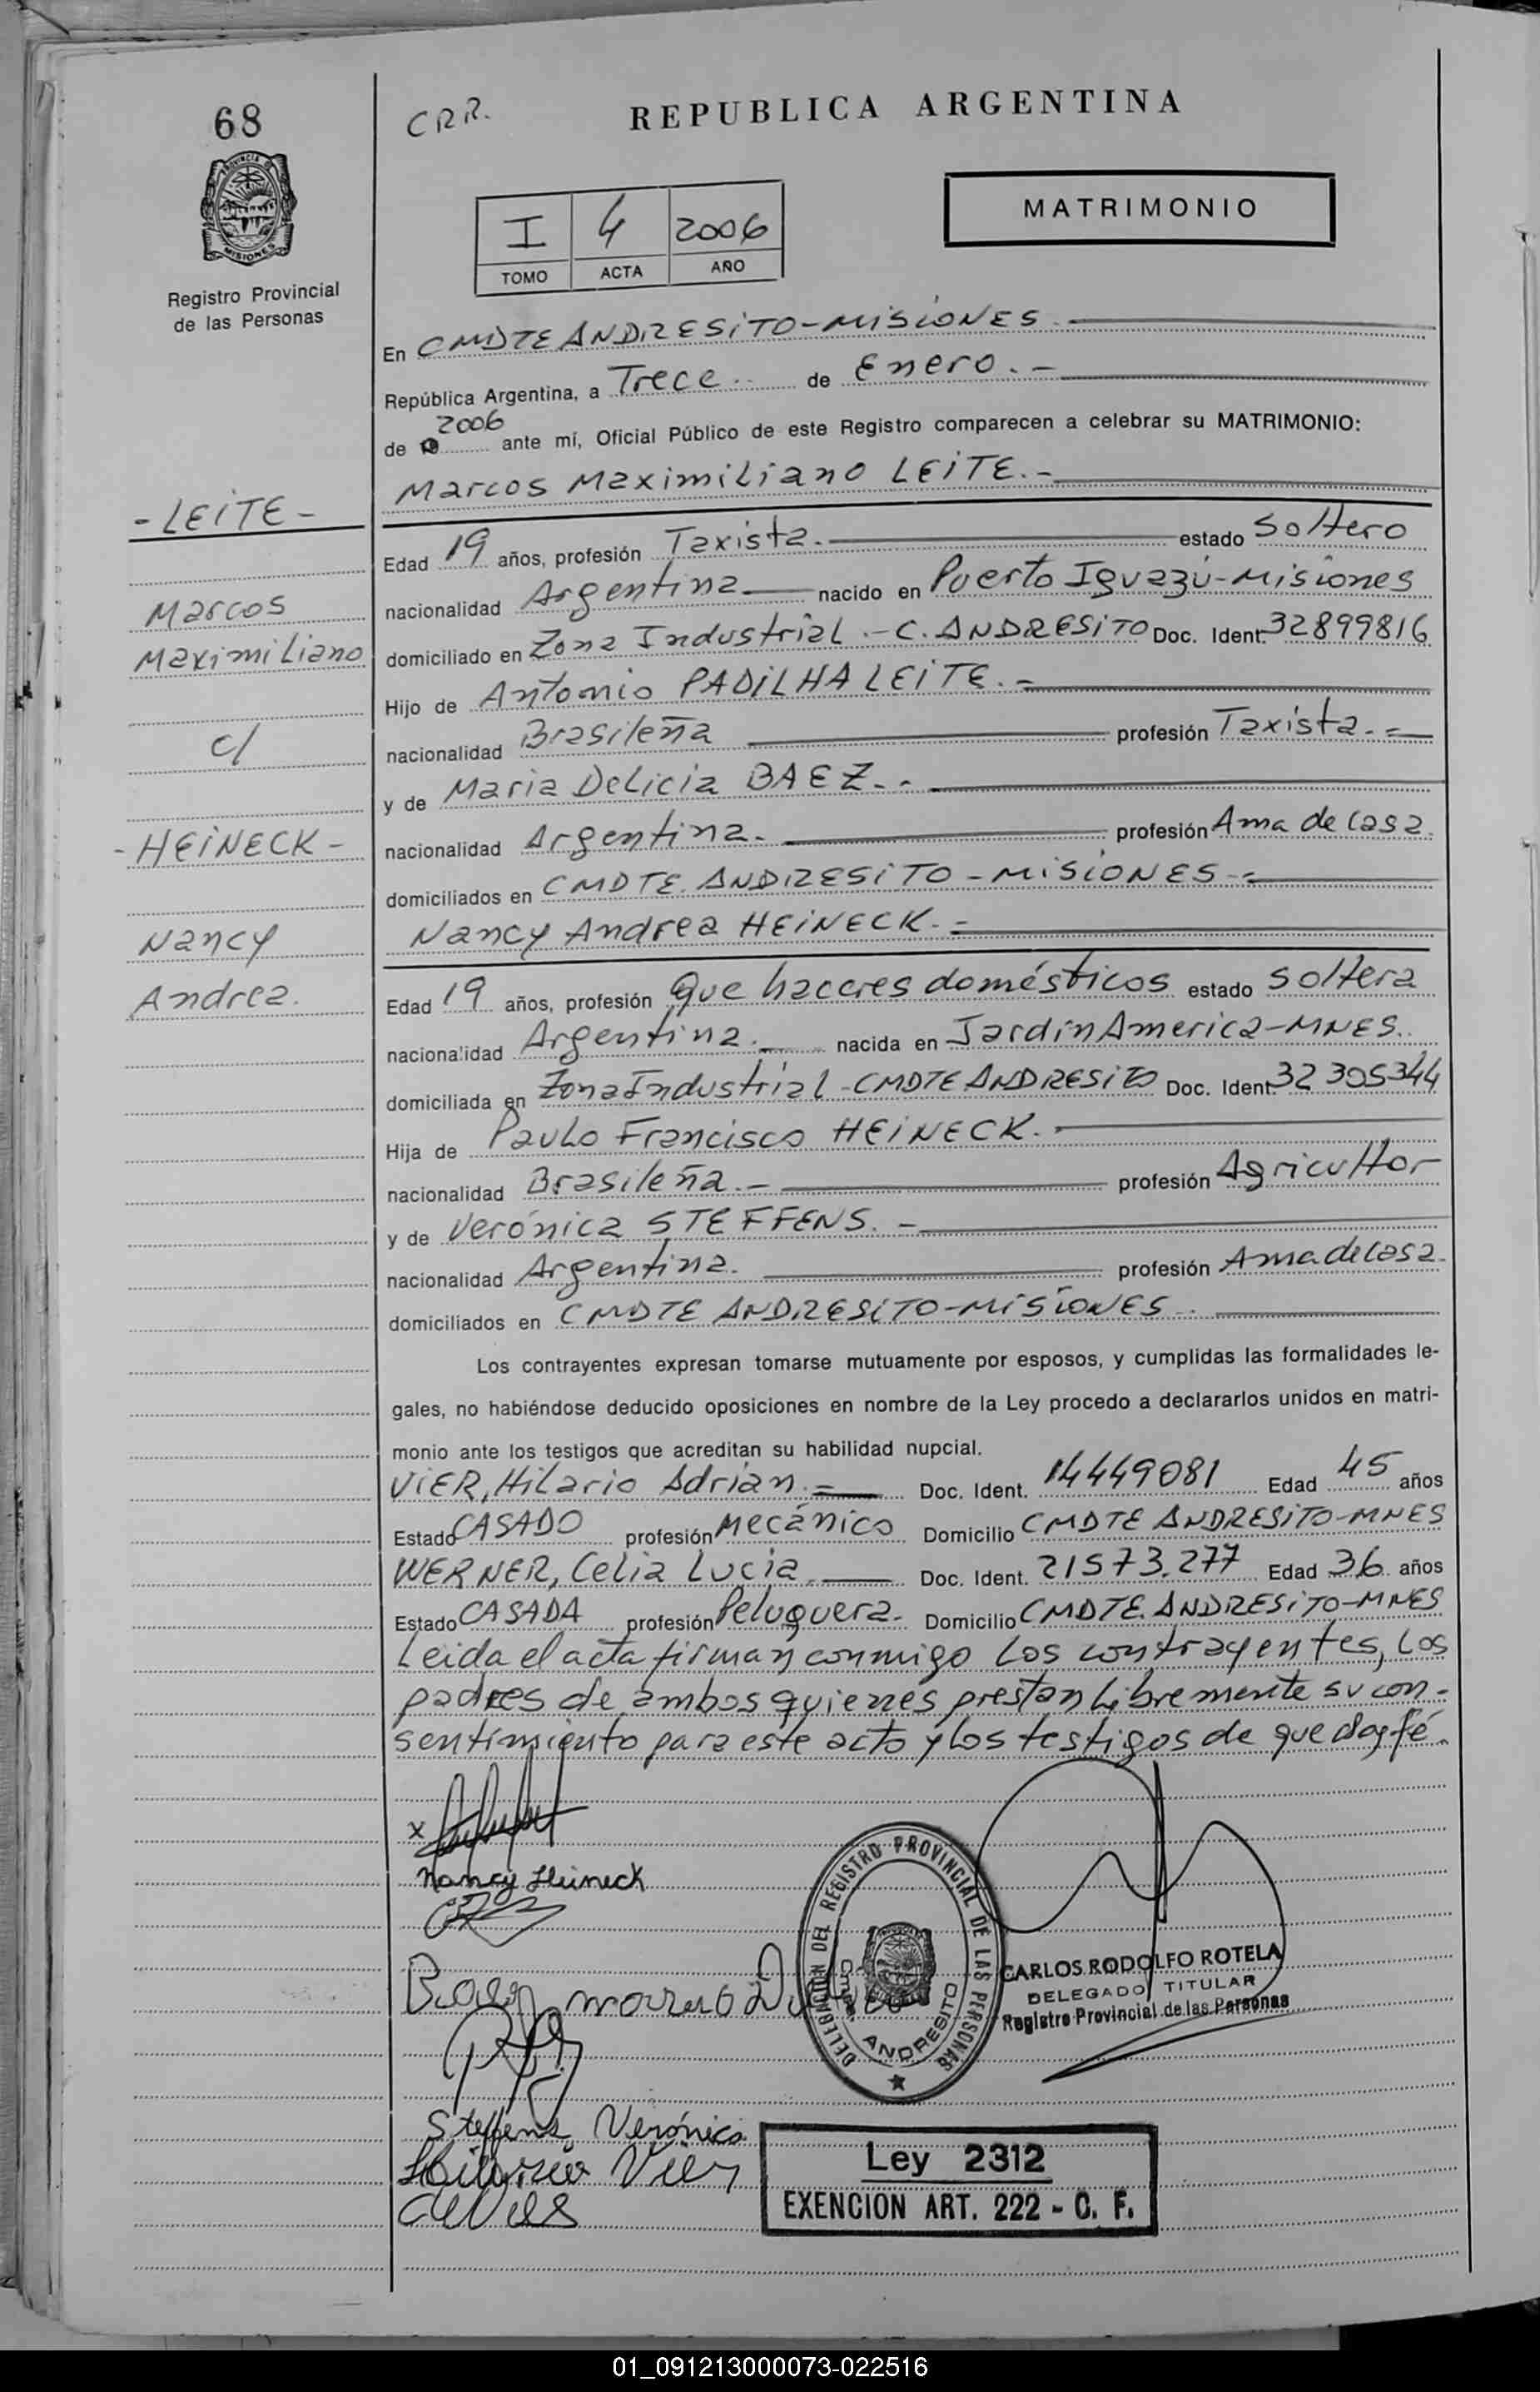 68
CRR.
REPUBLICA ARGENTINA
PROVINCIA DE
MISIONES
Registro Provincial
de las Personas
I 4 2006
TOMO ACTA AÑO
MATRIMONIO
En CMDTE ANDRESiTO-MiSiONES.
República Argentina, a Trece.. de Enero.-
2006
de ante mí, Oficial Público de este Registro comparecen a celebrar su MATRIMONIO:
Marcos Maximiliano LEiTE.-
- LEiTE -
Marcos
Maximiliano
c/
- HEiNECK -
Nancy
Andrea.
Edad 19 años, profesión Taxista. estado Soltero
nacionalidad Argentina nacido en Puerto Iguazú-Misiones
domiciliado en Zona Industrial.-C. ANDRESiTO Doc. Ident. 32899816
Hijo de Antonio PADiLHA LEiTE.-
nacionalidad Brasileña profesión Taxista.-
y de Maria Delicia BAEZ.-
nacionalidad Argentina. profesión Ama de casa.
domiciliados en CMDTE. ANDRESiTO-MiSiONES-
Nancy Andrea HEiNECK.-
Edad 19 años, profesión Que haceres domésticos estado soltera
nacionalidad Argentina. nacida en Jardín America-MNES.
domiciliada en Zona Industrial-CMDTE ANDRESiTO Doc. Ident. 32 305344
Hija de Paulo Francisco HEiNECK.-
nacionalidad Brasileña.- profesión Agricultor
y de Verónica STEFFENS.-
nacionalidad Argentina. profesión Ama de casa.
domiciliados en CMDTE ANDRESiTO-MiSiONES.
Los contrayentes expresan tomarse mutuamente por esposos, y cumplidas las formalidades le-
gales, no habiéndose deducido oposiciones en nombre de la Ley procedo a declararlos unidos en matri-
monio ante los testigos que acreditan su habilidad nupcial.
ViER, Hilario Adrián.- Doc. Ident. 14449081 Edad 45 años
Estado CASADO profesión Mecánico Domicilio CMDTE ANDRESiTO-MNES
WERNER, Celia Lucia. Doc. Ident. 21573.277 Edad 36 años
Estado CASADA profesión Peluquera. Domicilio CMDTE. ANDRESiTO-MNES
Leida el acta firman conmigo los contrayentes, los
padres de ambos quienes prestan libremente su con-
sentimiento para este acto y los testigos de que doy fé.
x
Nancy Heineck
DELEGACION DEL REGISTRO PROVINCIAL DE LAS PERSONAS
CMDTE. ANDRESITO
CARLOS RODOLFO ROTELA
DELEGADO TITULAR
Registro Provincial de las Personas
Steffens, Verónica
Hilario Vier
Ley 2312
EXENCION ART. 222 - C. F.
01_091213000073-022516